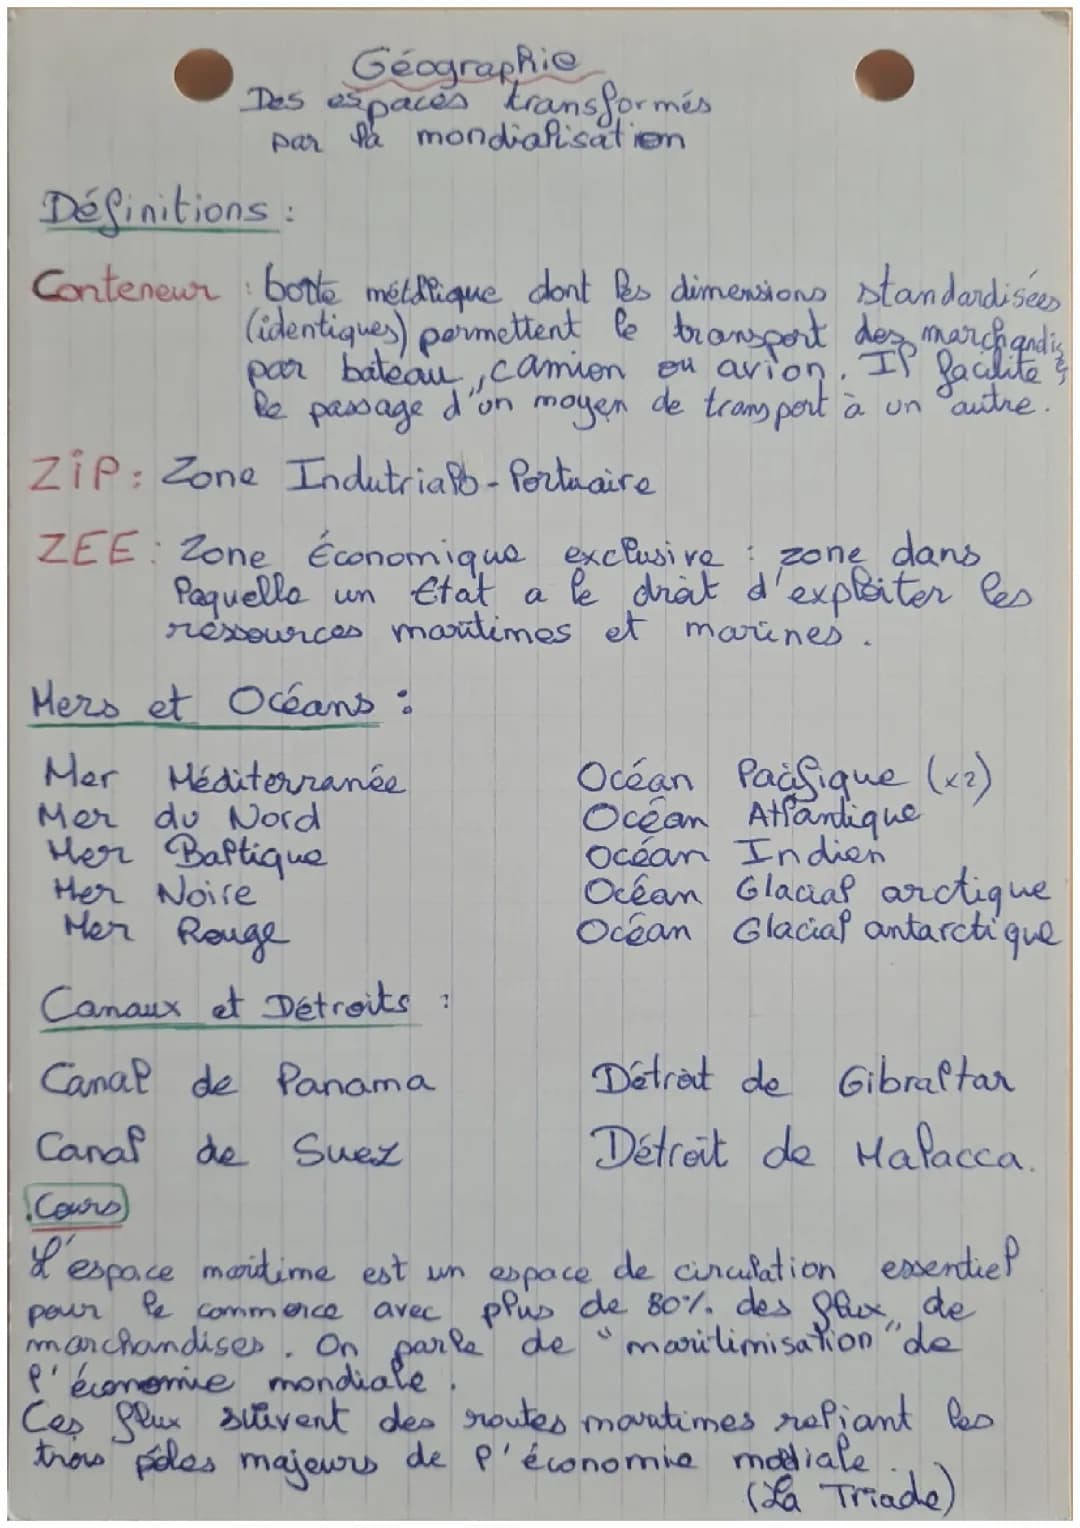 Géographie
Des espaces transformés
par la mondialisation
Définitions :
Conteneur : boîte métallique dont les dimensions standardisées
(identiques) permettent le transport des marchandises
par bateau, camion ou avion. Il facilite
le passage d'un moyen de transport à un autre.
ZiP : Zone Indutrialo-Portuaire
ZEE : Zone Économique exclusive : zone dans
laquelle un Etat a le droit d'exploiter les
ressources maritimes et marines.
Mers et Océans :
Mer Méditerranée
Mer du Nord
Mer Baltique
Mer Noire
Mer Rouge
Océan Pacifique (x2)
Océan Atlantique
Océan Indien
Océan Glacial arctique
Océan Glacial antarctique
Canaux et Détroits :
Canal de Panama
Canal de Suez
Détroit de Gibraltar
Détroit de Malacca.
Cours
L'espace maritime est un espace de circulation essentiel
pour le commerce avec plus de 80% des flux de
marchandises. On parle de "maritimisation" de
l'économie mondiale.
Ces flux suivent des routes maritimes reliant les
trois pôles majeurs de l'économie mondiale.
(La Triade)